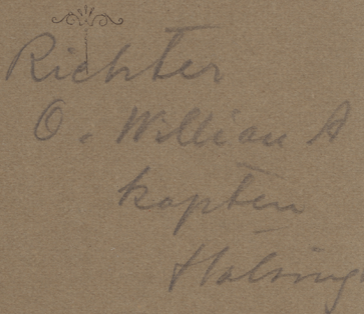 Richter
O. William A
kapten
Hälsing